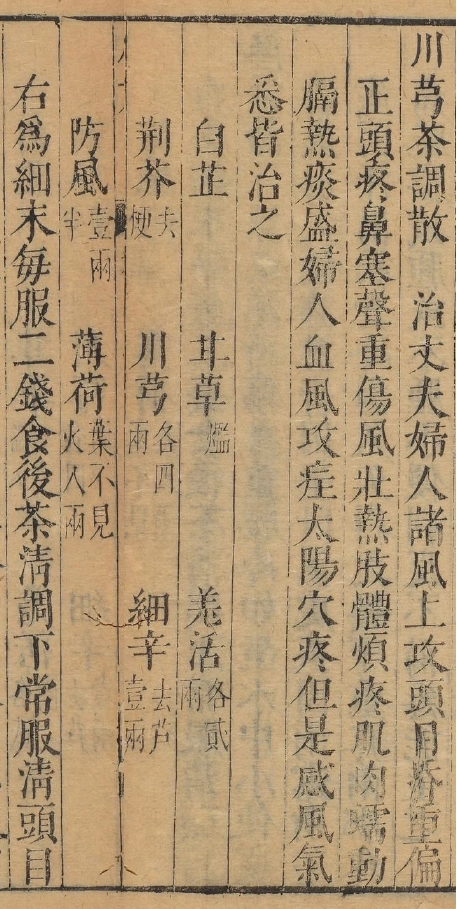 川芎茶調散 治丈夫婦人諸風上攻頭目昏重偏
正頭疼鼻塞聲重傷風壯熱肢體煩疼肌肉蠕動
膈熱痰盛婦人血風攻疰太陽穴疼但是感風氣
悉皆治之
白芷 甘草爁 羗活各貳兩
荆芥去梗 川芎各四兩 細辛去芦壹兩
防風壹兩半 薄荷葉不見火八兩
右爲細末每服二錢食後茶清調下常服清頭目